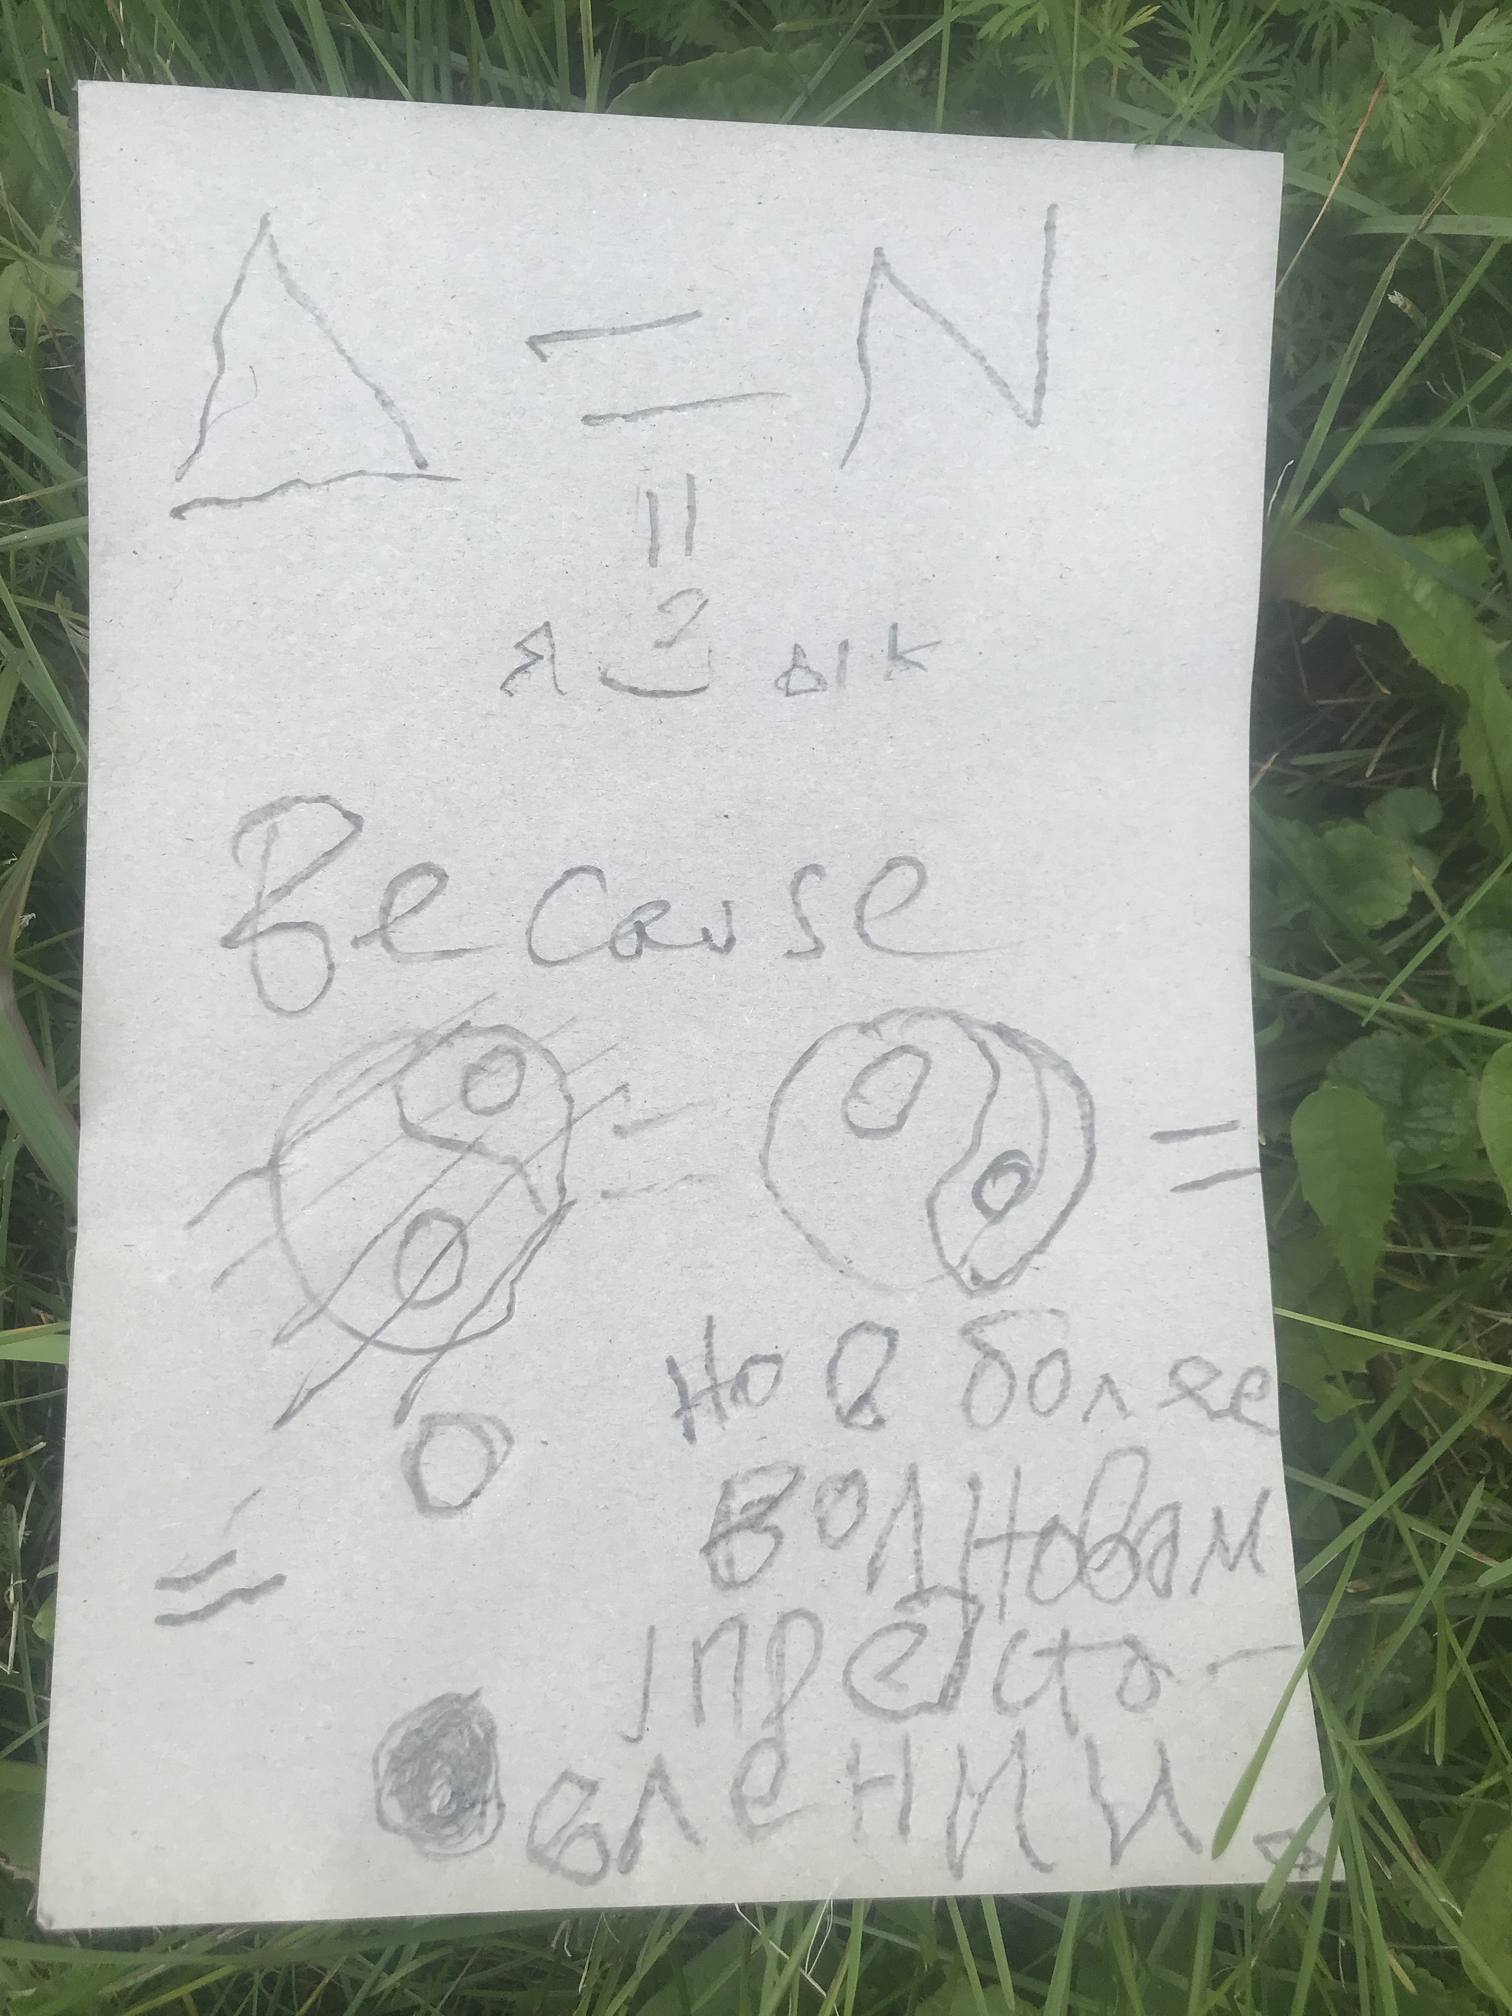 Δ = N
=
язык
Because
= =
но в более
=
волновом
предста-
влении